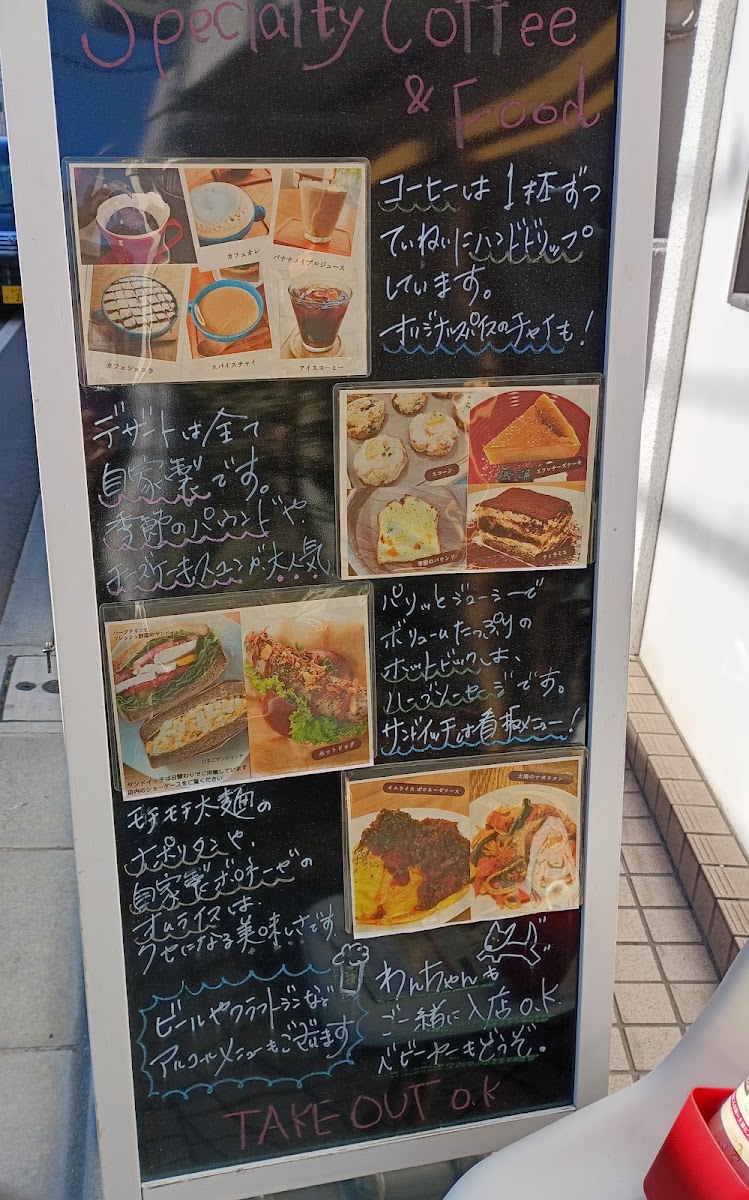 Specialty Coffee
& Food
カフェオレ
バナナメイプルジュース
カフェショコラ
スパイスチャイ
アイスコーヒー
コーヒーは1杯ずつ
ていねいにハンドドリップ
しています。
オリジナルスパイスのチャイも!
デザートは全て
自家製です。
季節のパウンドや、
チーズケーキ、スコーンが大人気
スコーン
スフレチーズケーキ
季節のパウンド
ティラミス
ハーブチキンと
フレッシュ野菜のサンドイッチ
たまごサンドイッチ
ホットドッグ
サンドイッチは日替わりでご用意しています
店内のショーケースをご覧ください
パリッとジューシーで
ボリュームたっぷりの
ホットドックは、
ハーブソーセージです。
サンドイッチは看板メニュー!
モチモチ太麺の
ナポリタンや、
自家製ボロネーゼの
オムライスは、
クセになる美味しさです
オムライス ボロネーゼソース
太麺のナポリタン
ビールやクラフトジンなど
アルコールメニューもございます
わんちゃんも
ご一緒に入店o.k.
ベビーカーもどうぞ。
TAKE OUT o.k.